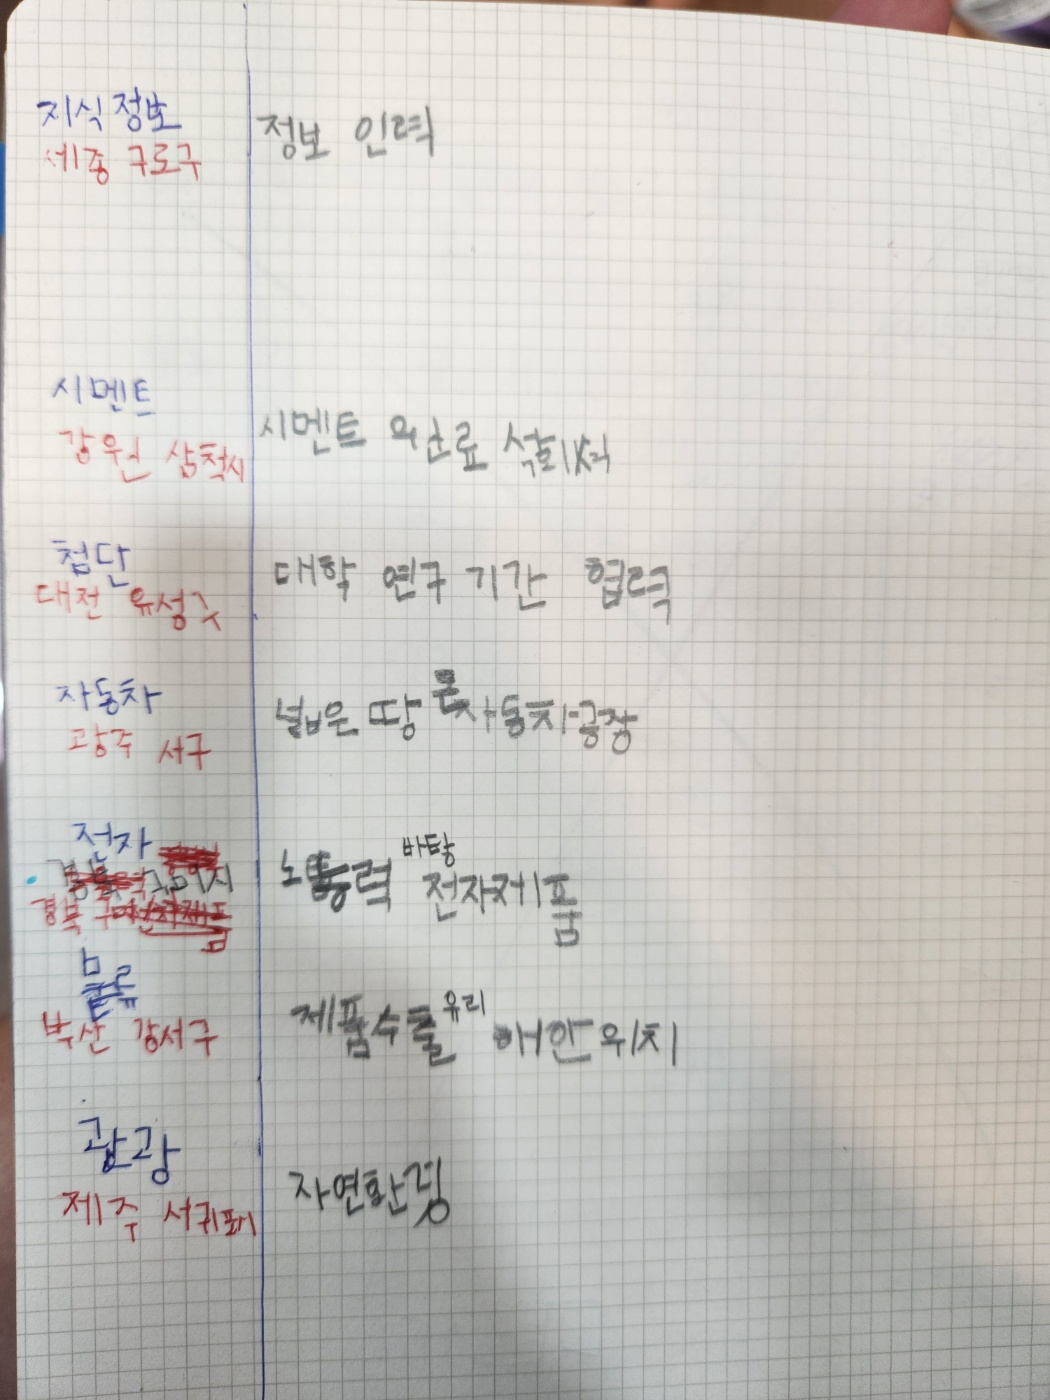 지식 정보
세종 구로구
정보 인력
시멘트
강원 삼척시
시멘트 원료 석회석
첨단
대전 유성구
대학 연구 기간 협력
자동차
광주 서구
넓은 땅 큰 자동차 공장
전자
경북 구미
노동력 바탕 전자제품
물류
부산 강서구
제품 수출 유리 해안 위치
관광
제주 서귀포시
자연환경